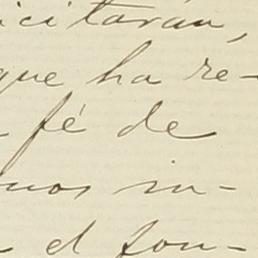 icitaran,
que ha re-
fé de
nos in-
el fon-